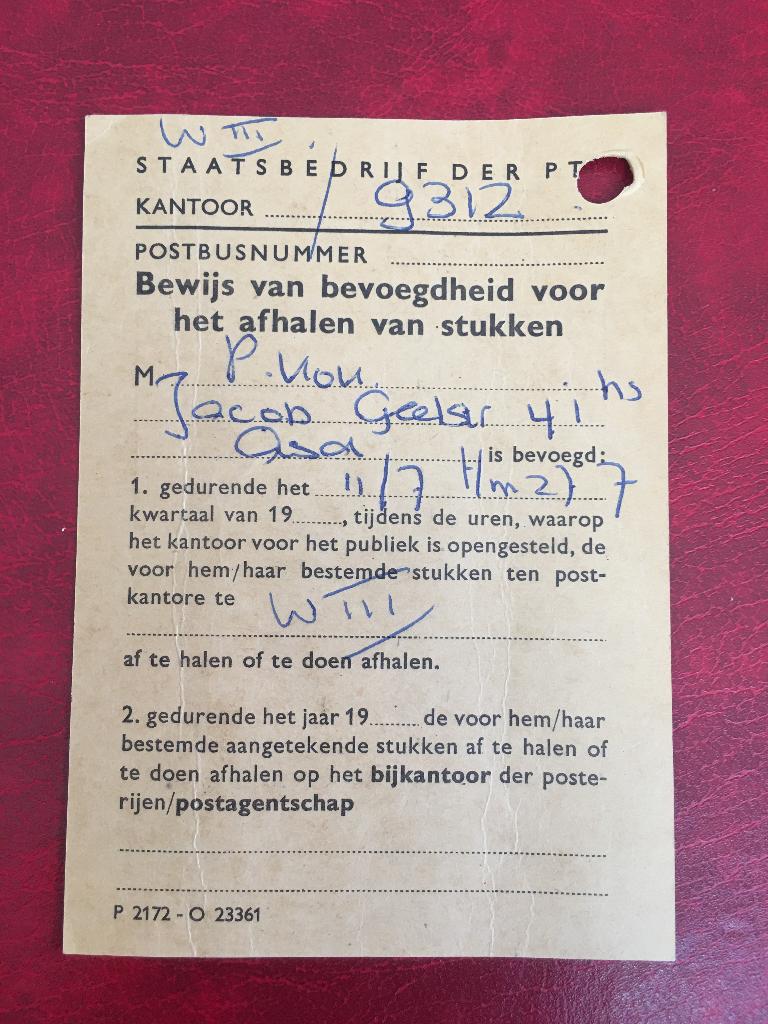 W III
STAATSBEDRIJF DER PT
KANTOOR 9312
POSTBUSNUMMER
Bewijs van bevoegdheid voor
het afhalen van stukken
M P.
Jacob 41 hs
is bevoegd:
1. gedurende het 11/7 t/m 27/7
kwartaal van 19, tijdens de uren, waarop
het kantoor voor het publiek is opengesteld, de
voor hem/haar bestemde stukken ten post-
kantore te W III
af te halen of te doen afhalen.
2. gedurende het jaar 19 de voor hem/haar
bestemde aangetekende stukken af te halen of
te doen afhalen op het bijkantoor der poste-
rijen/postagentschap
P 2172 - O 23361